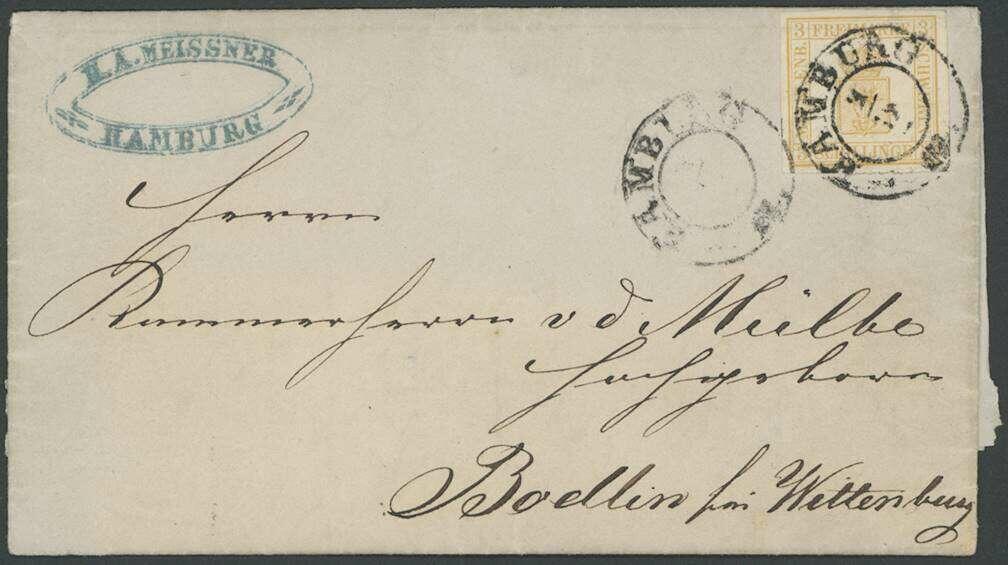 H. A. MEISSNER
HAMBURG
3 FREIMARKE 3
SCHILLINGE
HAMBURG
HAMBURG
Herrn
Kammerherrn v d Mülbe
Hochgeboren
Bodlin bei Wittenburg